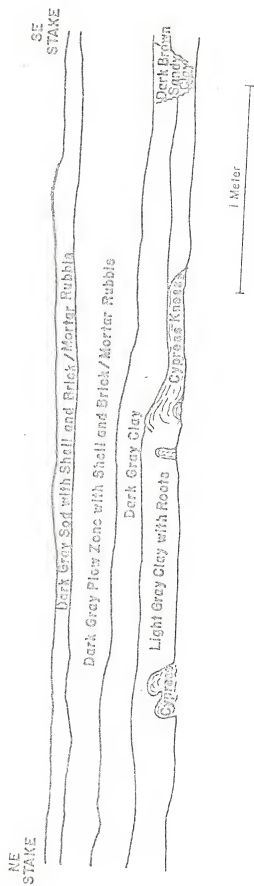 NE
STAKE
SE
STAKE
Dark Gray Sod with Shell and Brick/Mortar Rubble
Dark Gray Plow Zone with Shell and Brick/Mortar Rubble
Dark Gray Clay
Light Gray Clay with Roots
Cypress
Cypress Knees
Dark Brown
Sandy
Clay
1 Meter